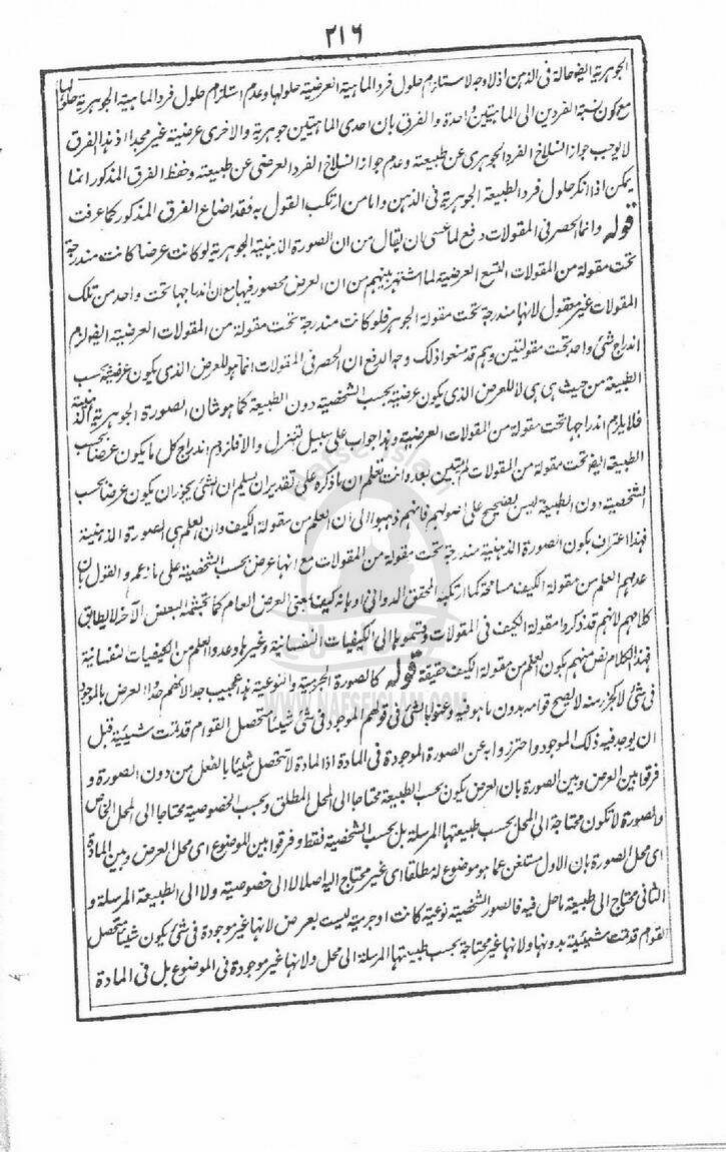 ٢١٦
الجوهرية ايضا حالة فى الذهن اذ لا وجه لاستلزام حلول فرد الماهية العرضية حلولها وعدم استلزام حلول فرد الماهية الجوهرية حلولها
مع كون نسبة الفردين الى الماهيتين واحدة والفرق بان احدى الماهيتين جوهرية والاخرى عرضية غير مجد اذ هذا الفرق
لا يوجب جواز انسلاخ الفرد الجوهرى عن طبيعته وعدم جواز انسلاخ الفرد العرضى عن طبيعته وحفظ الفرق المذكور انما
يمكن اذا انكر حلول فرد الطبيعة الجوهرية فى الذهن واما من ارتكب القول به فقد اضاع الفرق المذكور كما عرفت
قوله وانما الحصر فى المقولات دفع لما عسى ان يقال من ان الصورة الذهنية الجوهرية لو كانت عرضا كانت مندرجة
تحت مقولة من المقولات التسع العرضية لما اشتهر بينهم من ان العرض محصور فيها مع ان اندراجها تحت واحد من تلك
المقولات غير معقول لانها مندرجة تحت مقولة الجوهر فلو كانت مندرجة تحت مقولة من المقولات العرضية ايضا لزم
اندراج شئ واحد تحت مقولتين وهم قد منعوا ذلك وجه الدفع ان الحصر فى المقولات انما هو للعرض الذى يكون عرضيته بحسب
الطبيعة من حيث هى هى لا للعرض الذى يكون عرضيته بحسب الشخصية دون الطبيعة كما هو شان الصورة الجوهرية الذهنية
فلا يلزم اندراجها تحت مقولة من المقولات العرضية وهذا جواب على سبيل التنزل والا فلزوم اندراج كل ما يكون عرضا بحسب
الطبيعة ايضا تحت مقولة من المقولات لم يتبين بعد وانت تعلم ان ما ذكره على تقدير ان يسلم ان الشئ يجوز ان يكون عرضا بحسب
الشخصية دون الطبيعة ليس بصحيح على اصولهم فانهم ذهبوا الى ان العلم من مقولة الكيف وان العلم هى الصورة الذهنية
فهذا اعتراف بكون الصورة الذهنية مندرجة تحت مقولة من المقولات مع انها عرض بحسب الشخصية على ما زعم والقول بان
عدهم العلم من مقولة الكيف مسامحة كما ارتكبه المحقق الدوانى او بانه كيف بمعنى العرض العام كما تجشمه البعض الآخر لا يطابق
كلامهم لانهم قد ذكروا مقولة الكيف فى المقولات وقسموها الى الكيفيات النفسانية وغيرها وعدوا العلم من الكيفيات النفسانية
فهذا الكلام نص منهم بكون العلم من مقولة الكيف حقيقة قوله كالصورة الجرمية والنوعية هذا عجيب جدا لانهم حدوا العرض بالموجود
فى شئ لا كجزء منه لا يصح قوامه بدون ما هو فيه وعنوا بالشئ فى قولهم الموجود فى شئ شيئا متحصل القوام قد تمت شيئيته قبل
ان يوجد فيه ذلك الموجود واحترزوا به عن الصورة الموجودة فى المادة اذ المادة لا تتحصل شيئا بالفعل من دون الصورة و
فرقوا بين العرض وبين الصورة بان العرض يكون بحسب الطبيعة محتاجا الى المحل المطلق وبحسب الخصوصية محتاجا الى المحل الخاص
والصورة لا تكون محتاجة الى المحل بحسب طبيعتها المرسلة بل بحسب الشخصية فقط وفرقوا بين الموضوع اى محل العرض وبين المادة
اى محل الصورة بان الاول مستغن عما هو موضوع له مطلقا اى غير محتاج اليه اصلا لا الى خصوصيته ولا الى الطبيعة المرسلة و
الثانى محتاج الى طبيعة ما حل فيه فالصور الشخصية نوعية كانت او جرمية ليست بعرض لانها غير موجودة فى شئ يكون شيئا متحصل
القوام قد تمت شيئيته بدونها ولانها غير محتاجة بحسب طبيعتها المرسلة الى محل ولانها غير موجودة فى الموضوع بل فى المادة
WWW.NAFSEISLAM.COM